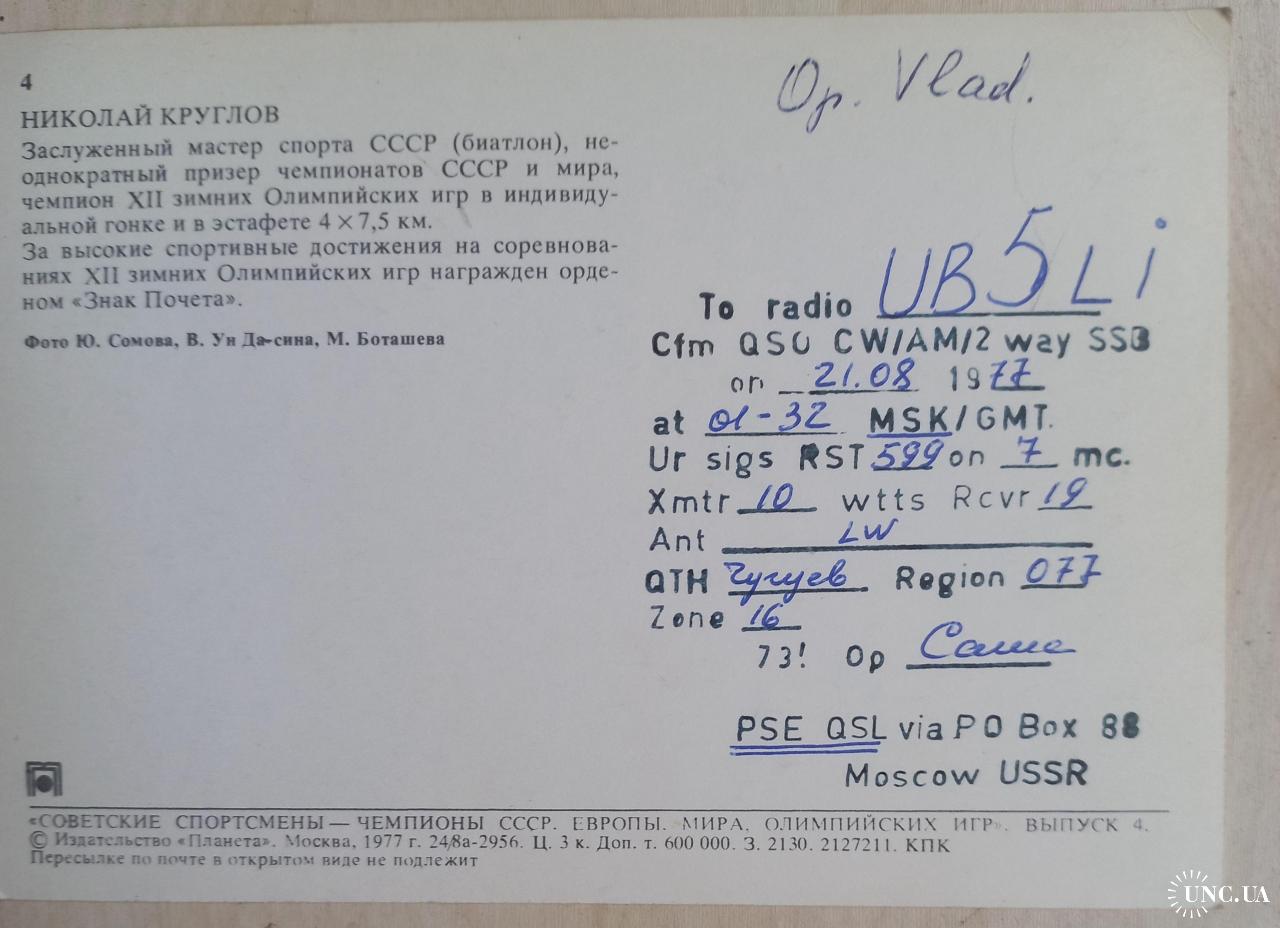 4
НИКОЛАЙ КРУГЛОВ
Заслуженный мастер спорта СССР (биатлон), не-
однократный призер чемпионатов СССР и мира,
чемпион XII зимних Олимпийских игр в индивиду-
альной гонке и в эстафете 4 × 7,5 км.
За высокие спортивные достижения на соревнова-
ниях XII зимних Олимпийских игр награжден орде-
ном «Знак Почета».
Фото Ю. Сомова, В. Ун Да-сина, М. Боташева
Op. Vlad.
To radio UB5Li
Cfm QSO CW/AM/2 way SSB
on 21.08 1977
at 01-32 MSK/GMT.
Ur sigs RST 599 on 7 mc.
Xmtr 10 wtts Rcvr 19
Ant LW
QTH Чугуев Region 077
Zone 16
73! Op Саша
PSE QSL via PO Box 88
Moscow USSR
«СОВЕТСКИЕ СПОРТСМЕНЫ — ЧЕМПИОНЫ СССР. ЕВРОПЫ. МИРА. ОЛИМПИЙСКИХ ИГР». ВЫПУСК 4.
© Издательство «Планета». Москва, 1977 г. 24/8а-2956. Ц. 3 к. Доп. т. 600 000. З. 2130. 2127211. КПК
Пересылке по почте в открытом виде не подлежит
UNC.UA